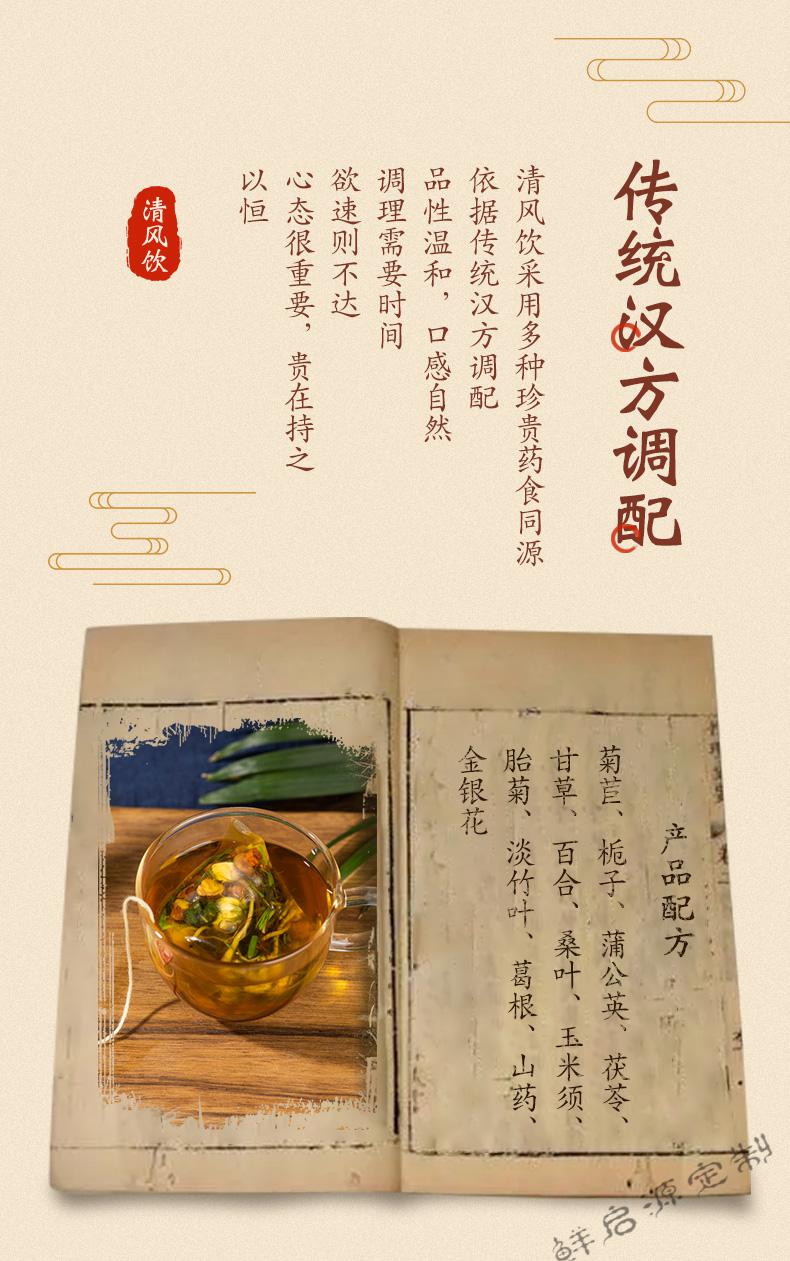 传统汉方调配
清风饮采用多种珍贵药食同源
依据传统汉方调配
品性温和，口感自然
调理需要时间
欲速则不达
心态很重要，贵在持之
以恒
清风饮
产品配方
菊苣、栀子、蒲公英、茯苓、
甘草、百合、桑叶、玉米须、
胎菊、淡竹叶、葛根、山药、
金银花
鲜启源定制